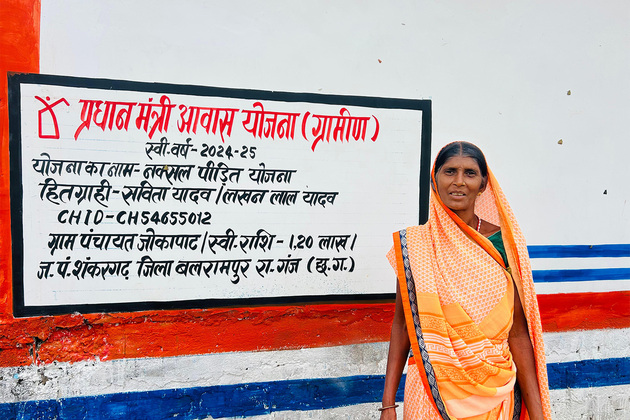 प्रधान मंत्री आवास योजना (ग्रामीण)
स्वी.वर्ष-2024-25
योजना का नाम- नक्सल पीड़ित योजना
हितग्राही-सविता यादव/लखन लाल यादव
CHID-CH54655012
ग्राम पंचायत जोकापाट/स्वी.राशि-1,20 लाख/
ज.पं.शंकरगढ़ जिला बलरामपुर रा.गंज (छ.ग.)